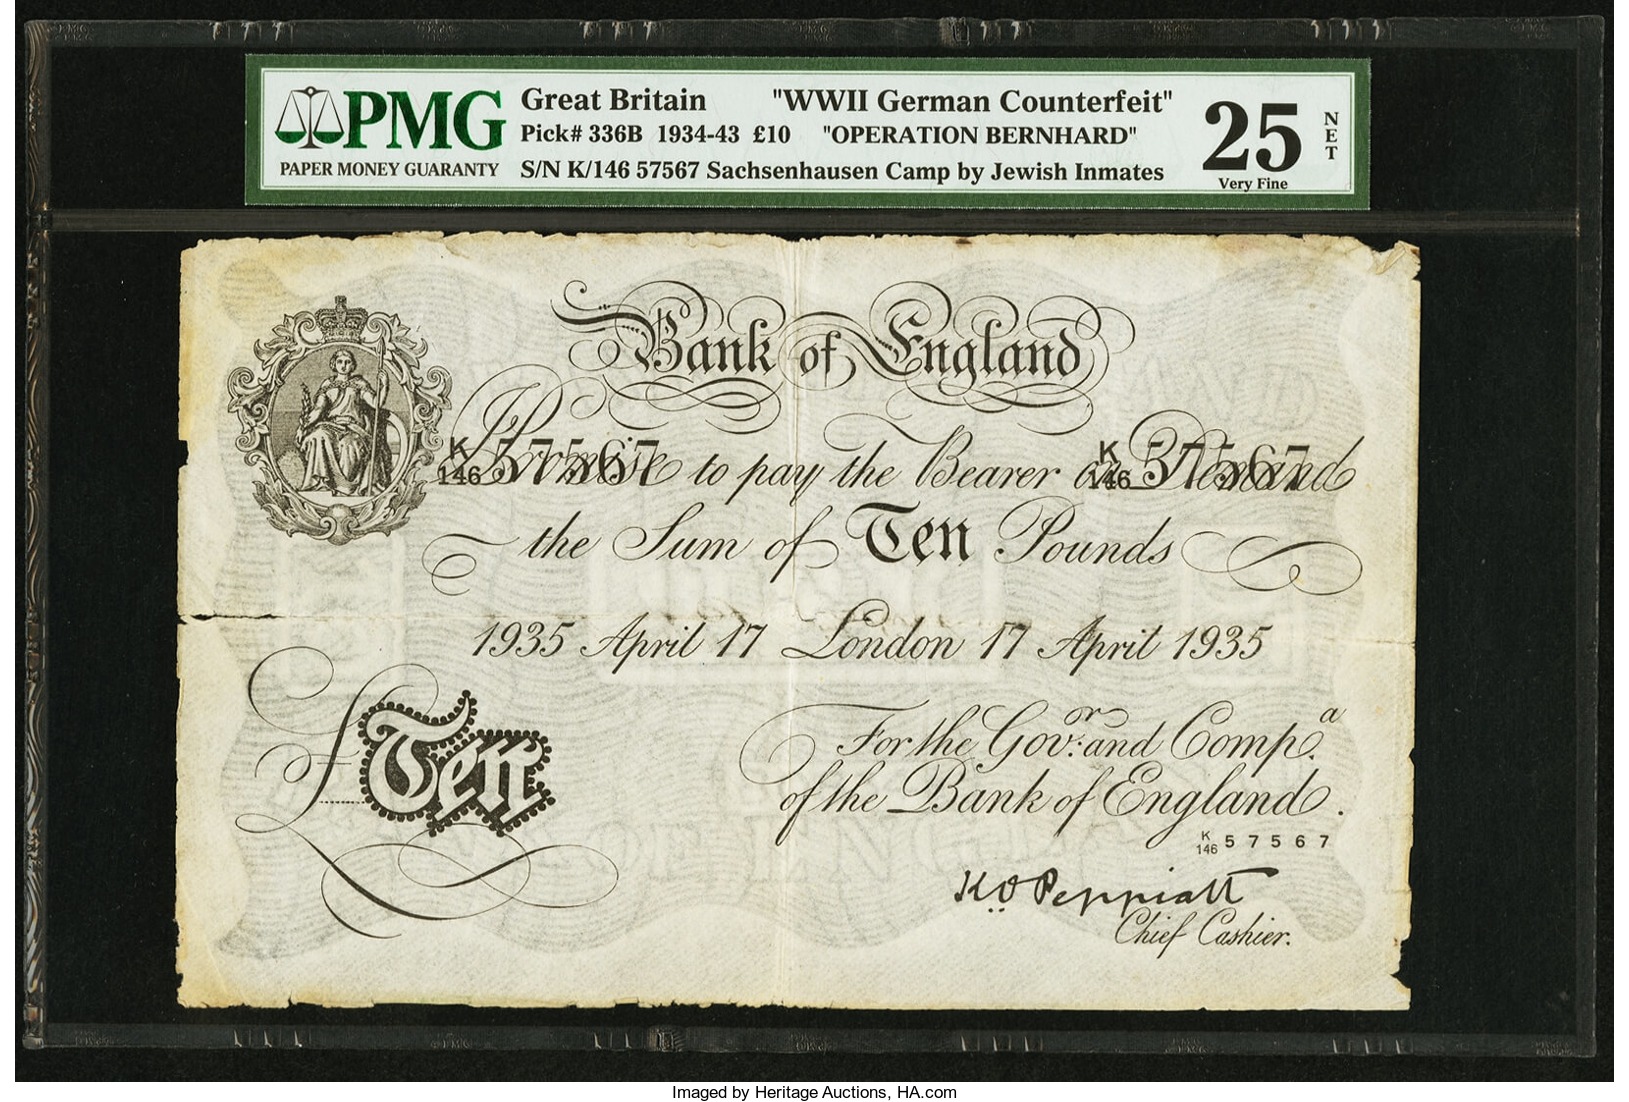 PMG
PAPER MONEY GUARANTY
Great Britain "WWII German Counterfeit"
Pick# 336B 1934-43 £10 "OPERATION BERNHARD"
S/N K/146 57567 Sachsenhausen Camp by Jewish Inmates
25
Very Fine
NET
Bank of England
K 146 57567 K 146 57567
I Promise to pay the Bearer on Demand
the Sum of Ten Pounds
1935 April 17 London 17 April 1935
£Ten
For the Govr. and Compa.
of the Bank of England.
K 146 57567
K O Peppiatt
Chief Cashier.
Imaged by Heritage Auctions, HA.com